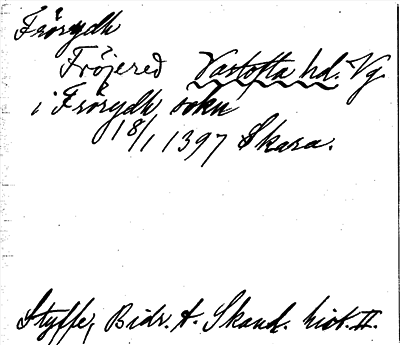 Frörydh
Fröjered Vartofta hd. Vg.
i Frörydh sokn
18/1 1397 Skara.
Styffe, Bidr. t. Skand. hist. II.